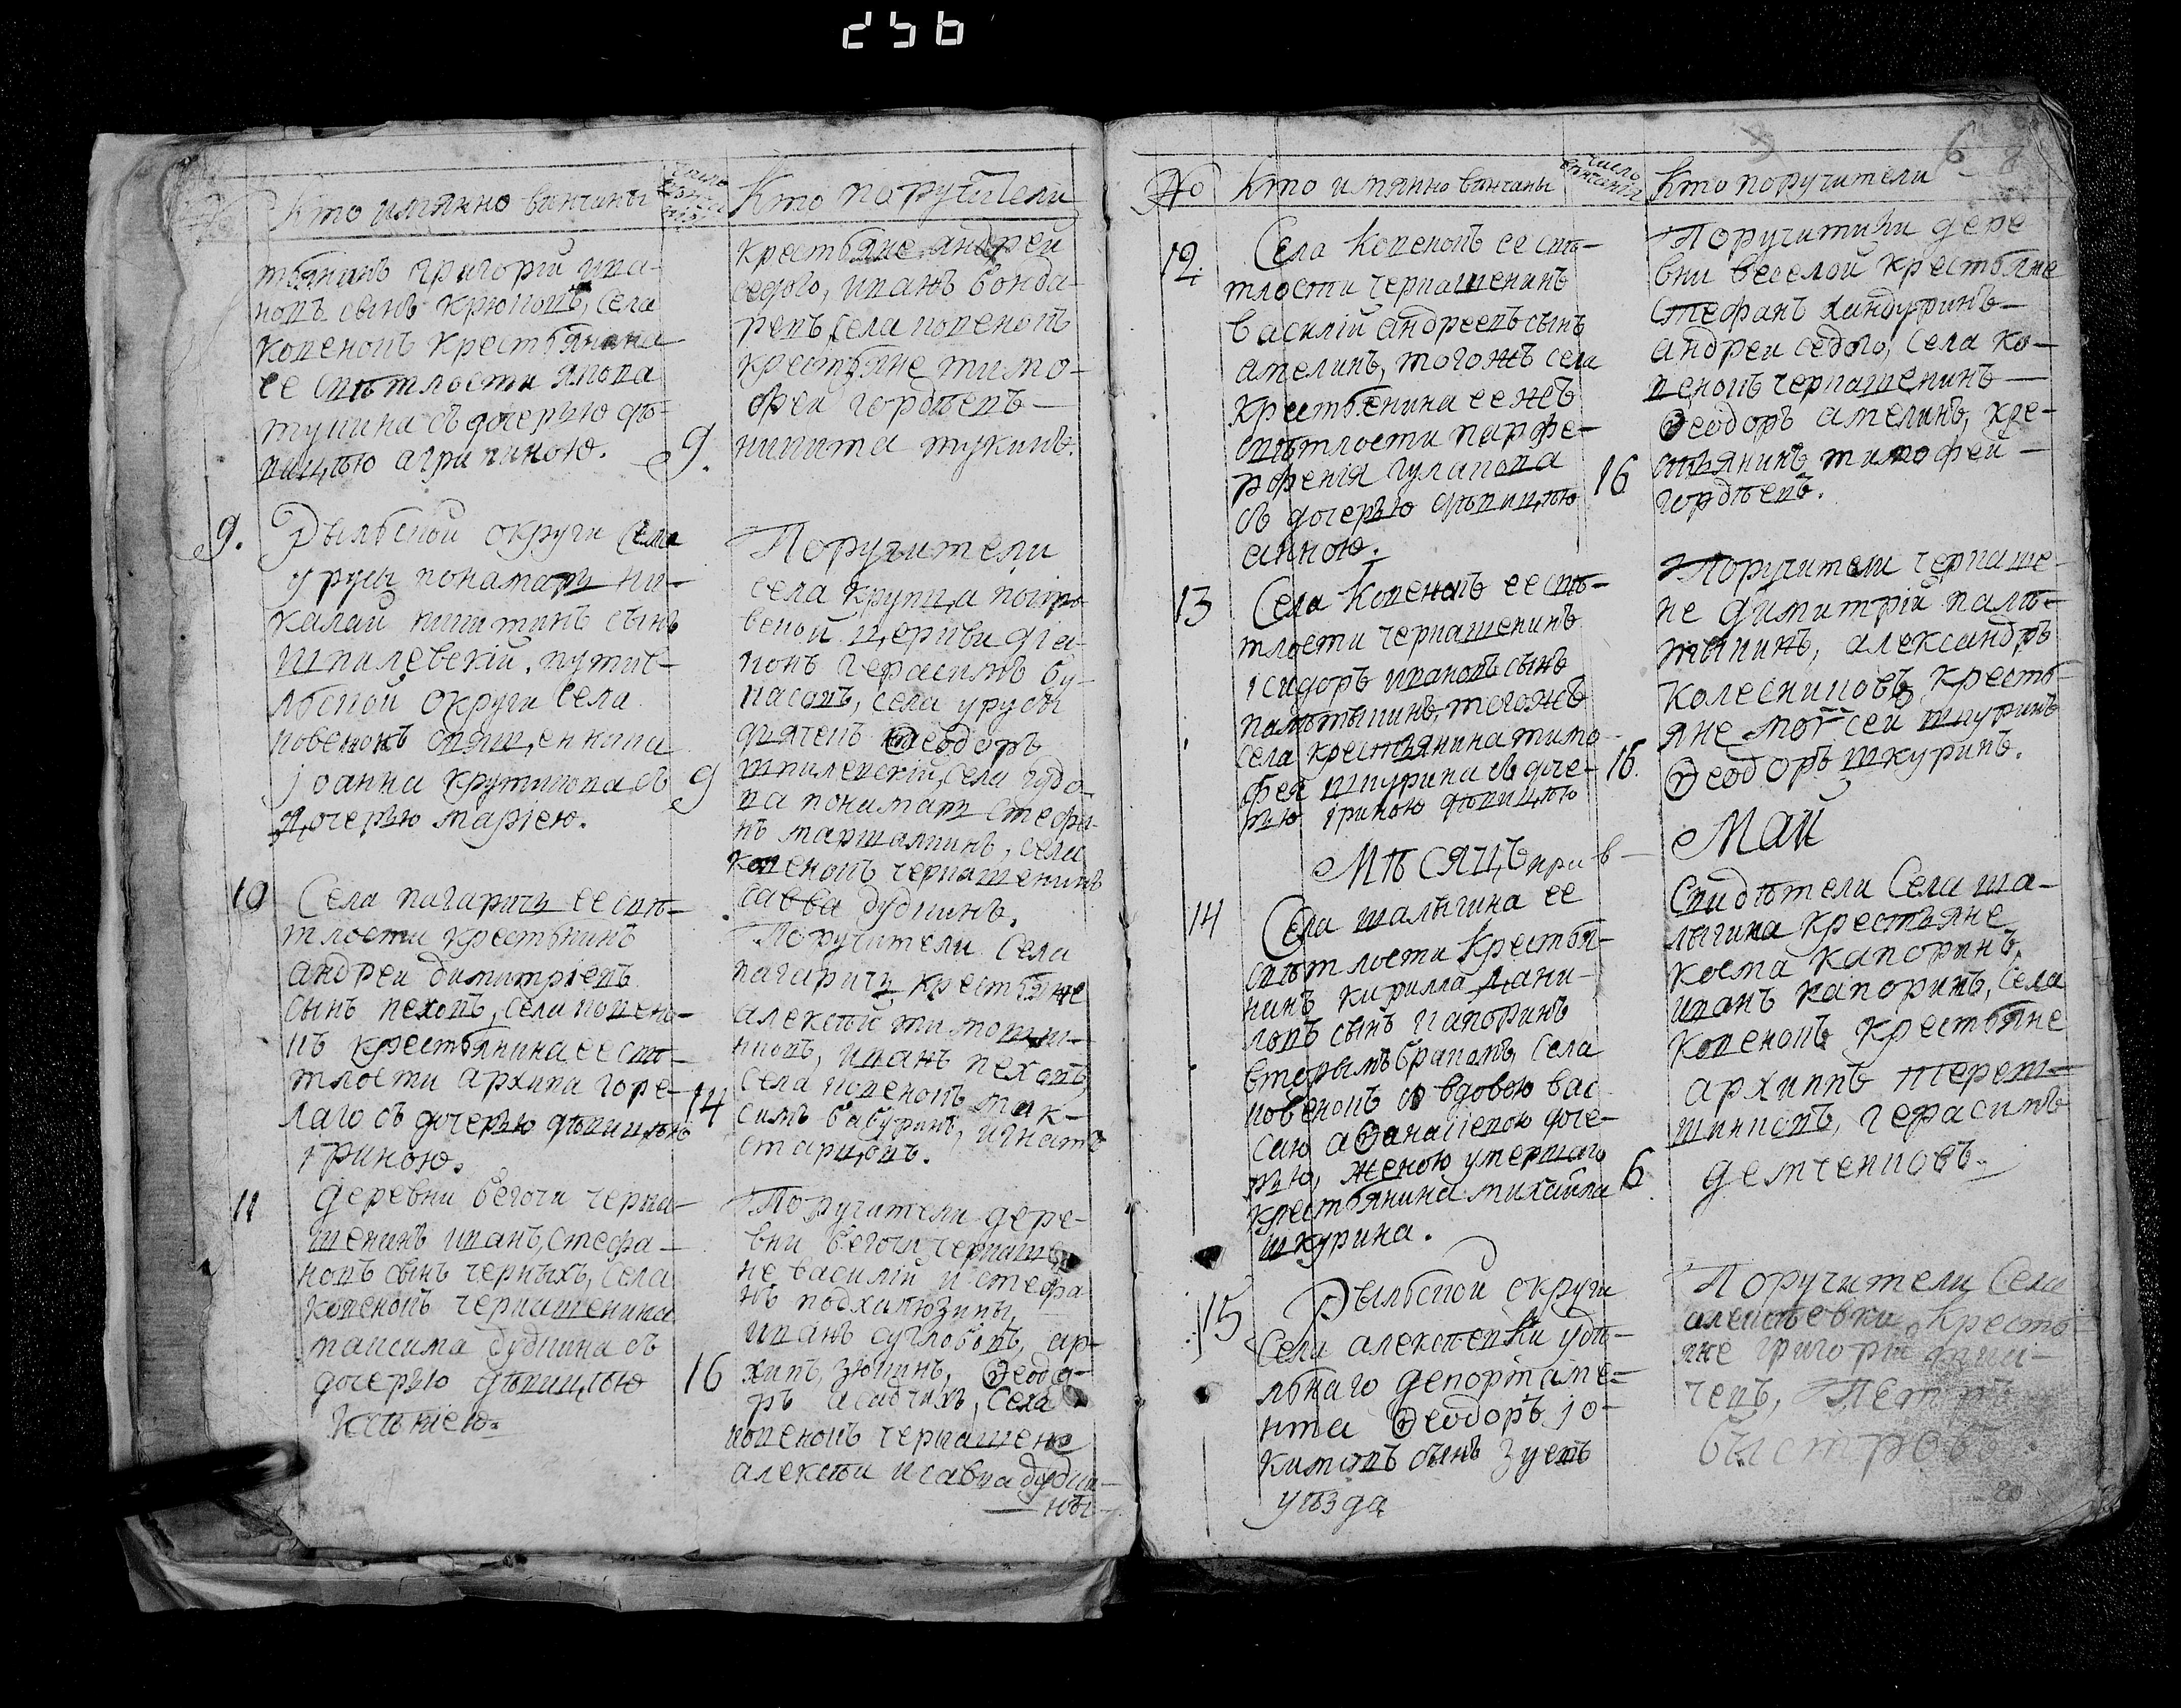 256
Кто имянно винчаны
число
Кто поручители
тьянинъ григорiй ива-
новъ сынъ крюковъ, села
ковенокъ крестьянина
ее свѣтлости якова
съ дочерью дѣ-
вицѣю агрипиною.
9.
крестьяне андрей
седого, иванъ бонда-
ревъ села ковенокъ
крестьяне тимо-
фей гордѣевъ
никита
9.
Рыльской округи села
урусы понамарь ни-
калай никитинъ сынъ
шпилевскiй, путив-
льской округи села
ковенокъ священника
iоанна крутикова съ
дочерью марiею.
9
Поручители
села крупца покро-
вской церкви дiа-
конъ герасимъ бу-
насовъ, села урусы
дьячекъ Ѳеодоръ
шпилевскiй, села
понамарь стефа-
нъ маршалкинъ, села
ковенокъ черкашенинъ
савва дудкинъ.
10
Села пагаричь ее свѣ-
тлости крестьнинъ
андрей димитрiевъ
сынъ пеховъ, села ковено-
къ крестьянина ее свѣ-
тлости архипа горе-
лаго съ дочерью дѣвицѣю
iриною.
14
Поручители села
пагаричь крестьяне
алексѣй
иванъ пеховъ,
села ковенокъ мак-
симъ бабуринъ, игнатъ
старцовъ.
11
деревни бегочи черка-
шенинъ иванъ, стефа-
новъ сынъ черныхъ, села
ковенокъ черкашенина
максима дудкина съ
дочерью дѣвицѣю
ксѣнiею.
16
Поручители дере-
вни бегочи черкаше-
не василiй и стефа-
нъ подхилюзины,
иванъ суглобовъ, ар-
хипъ зюкинъ, Ѳеодо-
ръ села
ковенокъ черкашене
алексѣй и савва дудки-
ны
6
№
Кто имянно винчаны
число
винчанiя
Кто поручители
12
Села Ковенокъ ее свѣ-
тлости черкашенинъ
василiй андреевъ сынъ
амелинъ, тогожъ села
крестьенина ее жъ
свѣтлости парфе-
рфенiя гулакова
съ дочерью дѣвицѣю
анною.
16
Поручители дере
вни веселой крестьяне
Стефанъ хандуринъ
андрей седого, села ко-
венокъ черкашенинъ
Ѳеодоръ амелинъ, кре-
стьянинъ тимофей
гордѣевъ.
13
Села Ковенокъ ее свѣ-
тлости черкашенинъ
iсидоръ ивановъ сынъ
тогожъ
села крестьянина тимо-
фея шкурина съ доче-
рью iриною дѣвицѣю
16.
Поручители черкаше-
не димитрiй
александръ
колесниковъ кресть-
яне моѵсей шкуринъ
Ѳеодоръ шкуринъ.
Мѣсяцъ
Май
14
Села шалыгина ее
свѣтлости крестья-
нинъ кирилла дани-
ловъ сынъ капоринъ
вторымъ бракомъ, села
ковенокъ со вдовою вас
сою аѲанасiевою доче-
рью, женою умершаго
крестьянина михайла
шкурина.
6
Свидѣтели Села ша-
лыгина крестьяне
косма капоринъ,
иванъ капоринъ, села
ковенокъ крестьяне
архипъ терет-
герасимъ
демченковъ.
15
Рыльской округи
Села алексѣевки удѣ-
льнаго депортаме-
нта Ѳеодоръ iо-
кимовъ сынъ зуевъ
уѣзда
Поручители Села
алексѣевки кресть
яне григорiй
Петръ
быстровъ